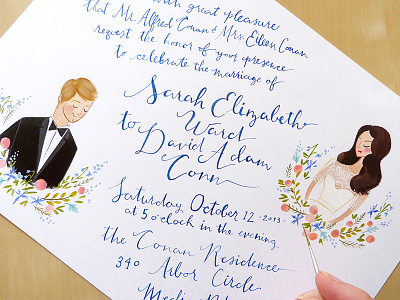 with great pleasure
that Mr. Alfred Conan & Mrs. Eileen Conan
request the honor of your presence
to celebrate the marriage of
Sarah Elizabeth
Ward
to
David Adam
Conn
Saturday, October 12 · 2013 ·
at 5 o'clock in the evening.
the Conan Residence
340 Arbor Circle